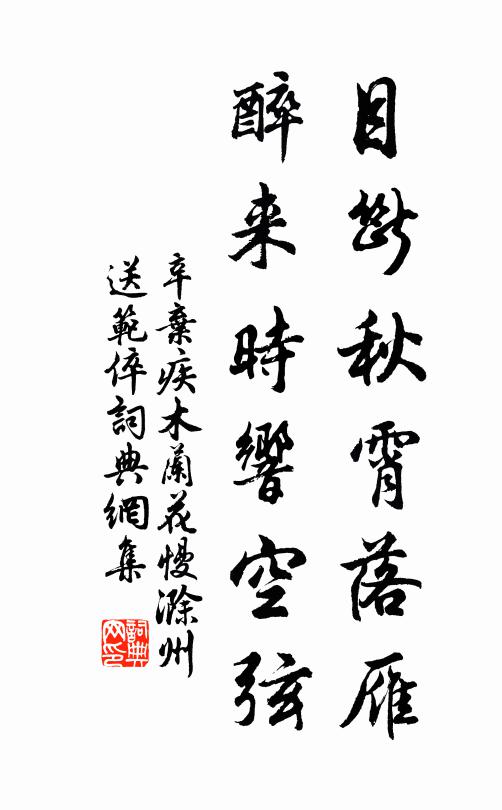 目断秋霄落雁
醉来時響空弦
辛棄疾木蘭花慢滁州
送範倅詞典網集
詞典網印